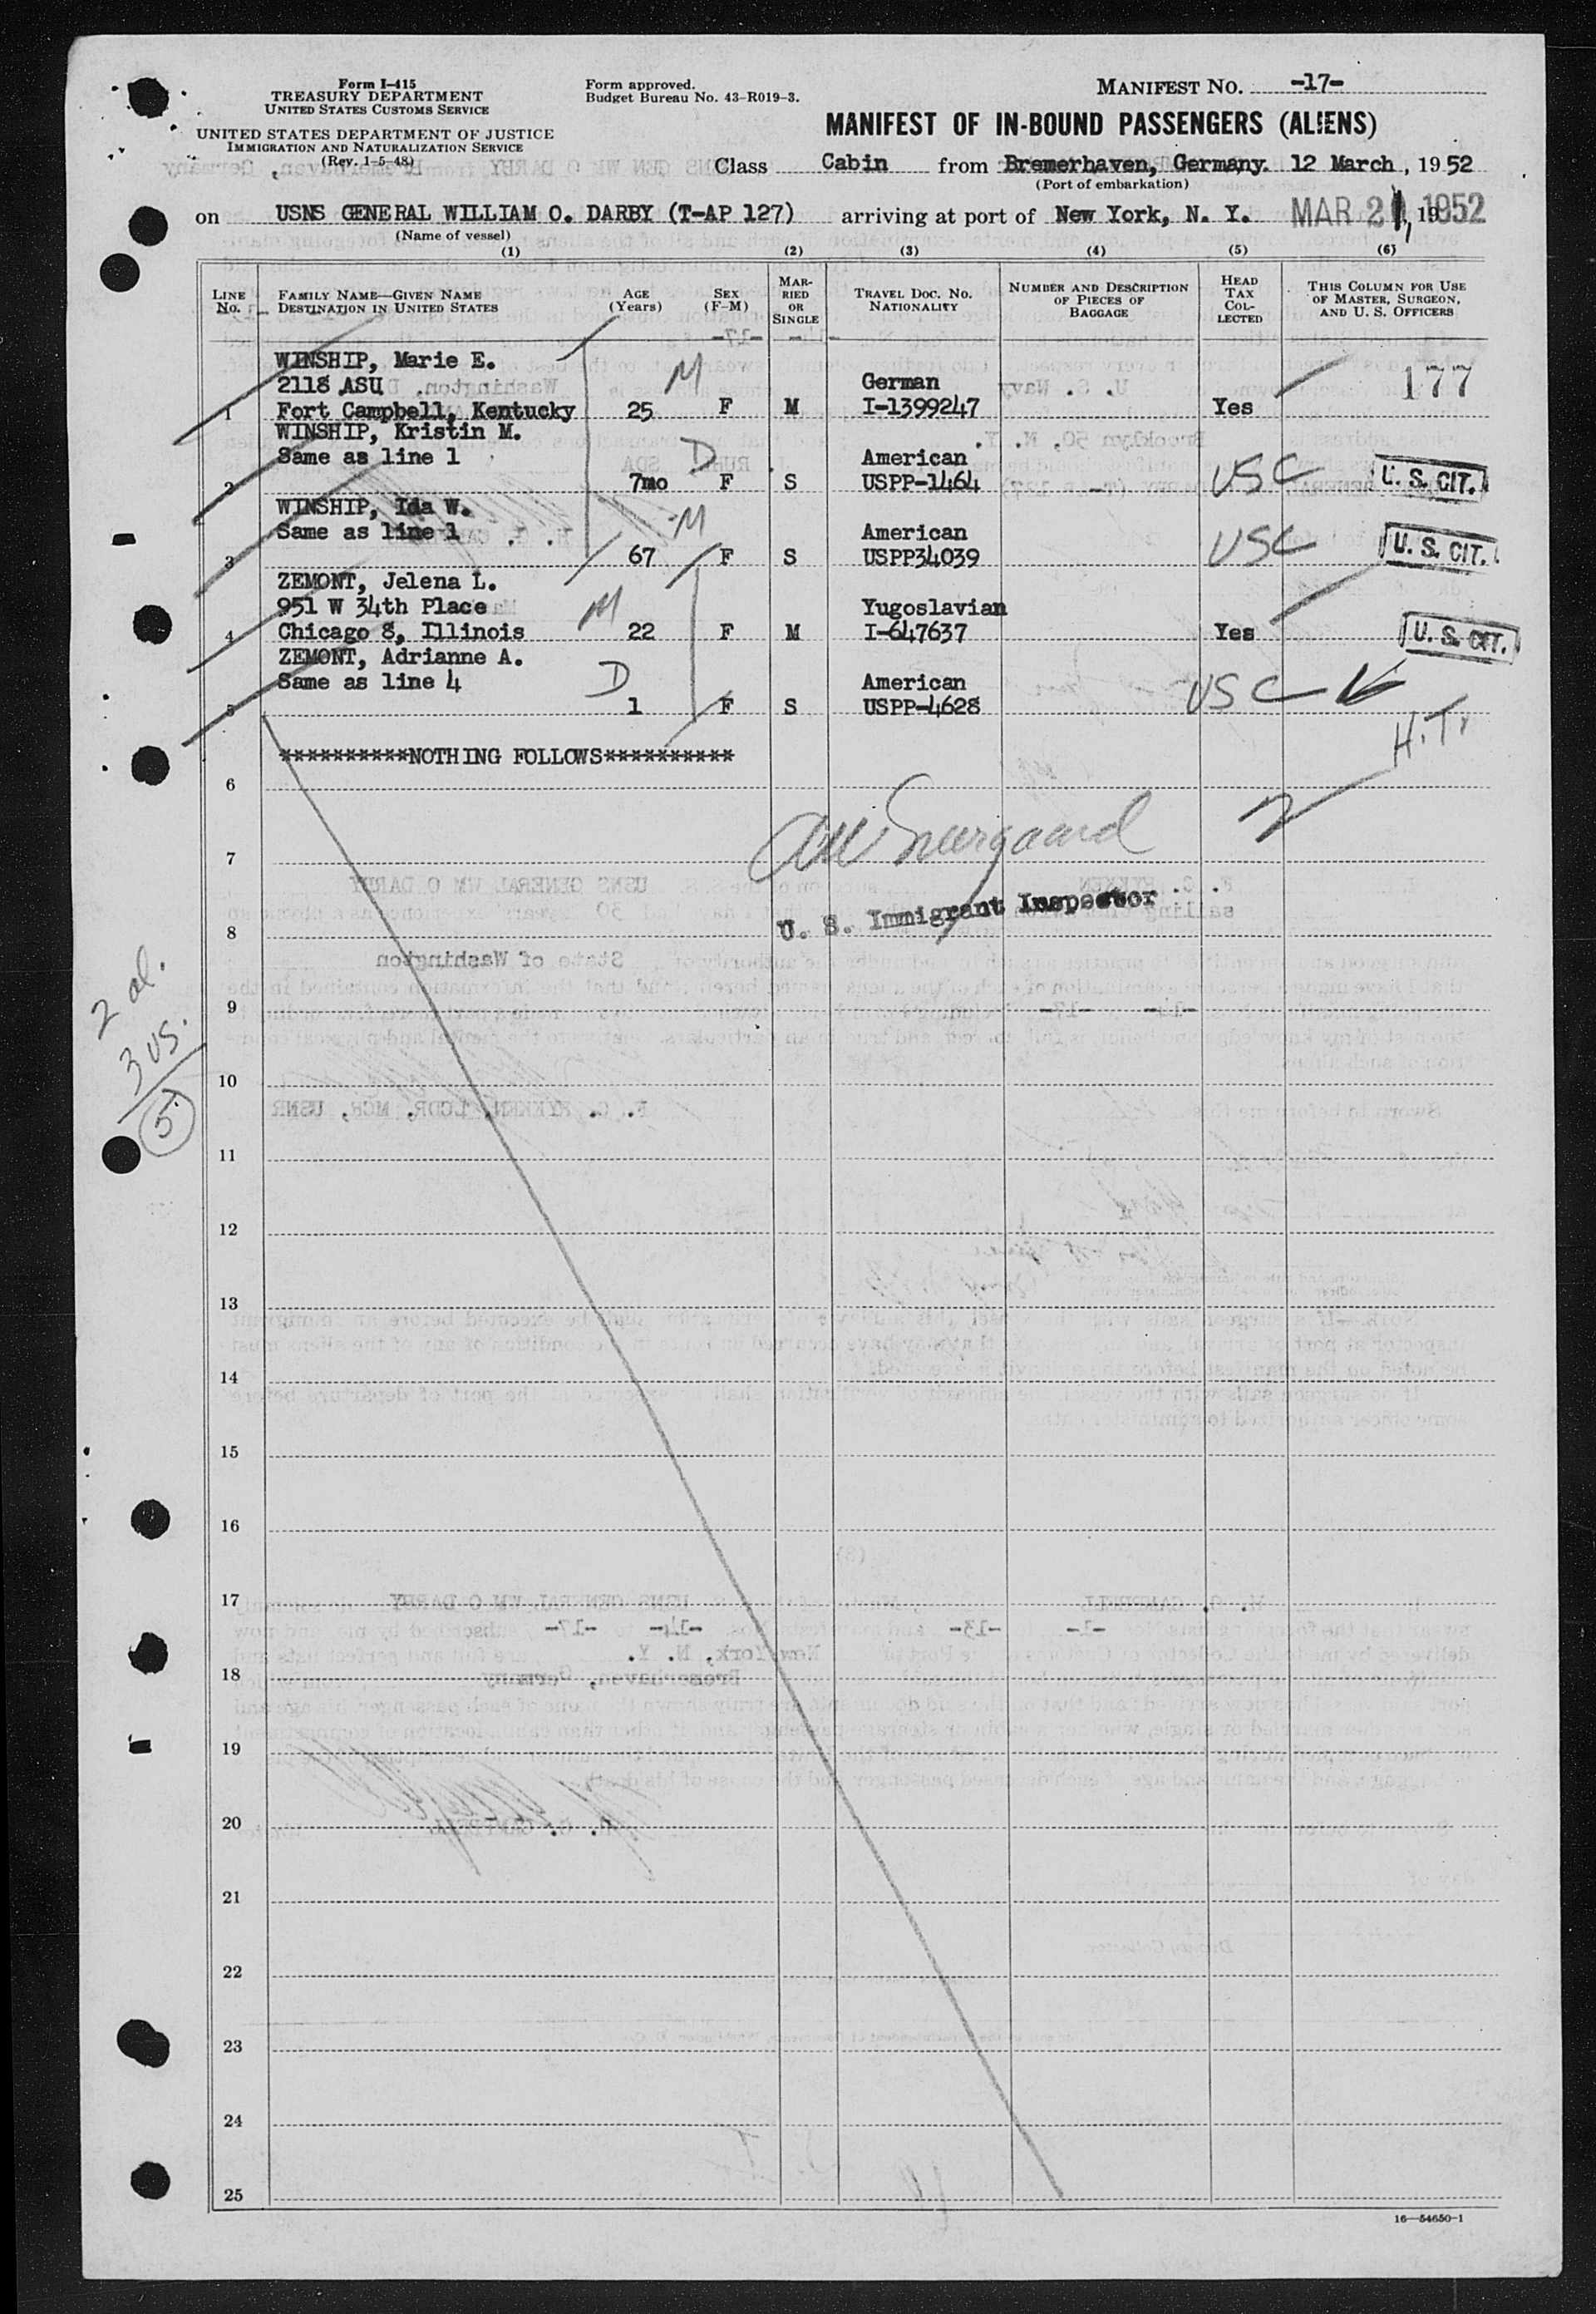 Form I-415
TREASURY DEPARTMENT
UNITED STATES CUSTOMS SERVICE
UNITED STATES DEPARTMENT OF JUSTICE
IMMIGRATION AND NATURALIZATION SERVICE
(Rev. 1-5-48)
Form approved.
Budget Bureau No. 43-R019-3.
MANIFEST NO. -17-
MANIFEST OF IN-BOUND PASSENGERS (ALIENS)
Class Cabin from Bremerhaven, Germany. 12 March, 1952
(Port of embarkation)
on USNS GENERAL WILLIAM O. DARBY (T-AP 127) arriving at port of New York, N. Y. MAR 21, 1952
(Name of vessel)
(1) (2) (3) (4) (5) (6)
LINE NO. FAMILY NAME—GIVEN NAME DESTINATION IN UNITED STATES AGE (Years) SEX (F-M) MARRIED OR SINGLE TRAVEL DOC. NO. NATIONALITY NUMBER AND DESCRIPTION OF PIECES OF BAGGAGE HEAD TAX COLLECTED THIS COLUMN FOR USE OF MASTER, SURGEON, AND U. S. OFFICERS
WINSHIP, Marie E. M
2118 ASU German 177
1 Fort Campbell, Kentucky 25 F M I-1399247 Yes
WINSHIP, Kristin M. D
Same as line 1 American
2 7mo F S USPP-1464 USC U. S. CIT.
WINSHIP, Ida W. M
Same as line 1 American
3 67 F S USPP34039 USC U. S. CIT.
ZEMONT, Jelena L.
951 W 34th Place M Yugoslavian
4 Chicago 8, Illinois 22 F M I-647637 Yes U. S. CIT.
ZEMONT, Adrianne A. D
Same as line 4 American
5 1 F S USPP-4628 USC
H.T.
**********NOTHING FOLLOWS**********
6
2
7
U. S. Immigrant Inspector
8
2 al.
9
3 us.
10
5
11
12
13
14
15
16
17
18
19
20
21
22
23
24
25
16—54650-1